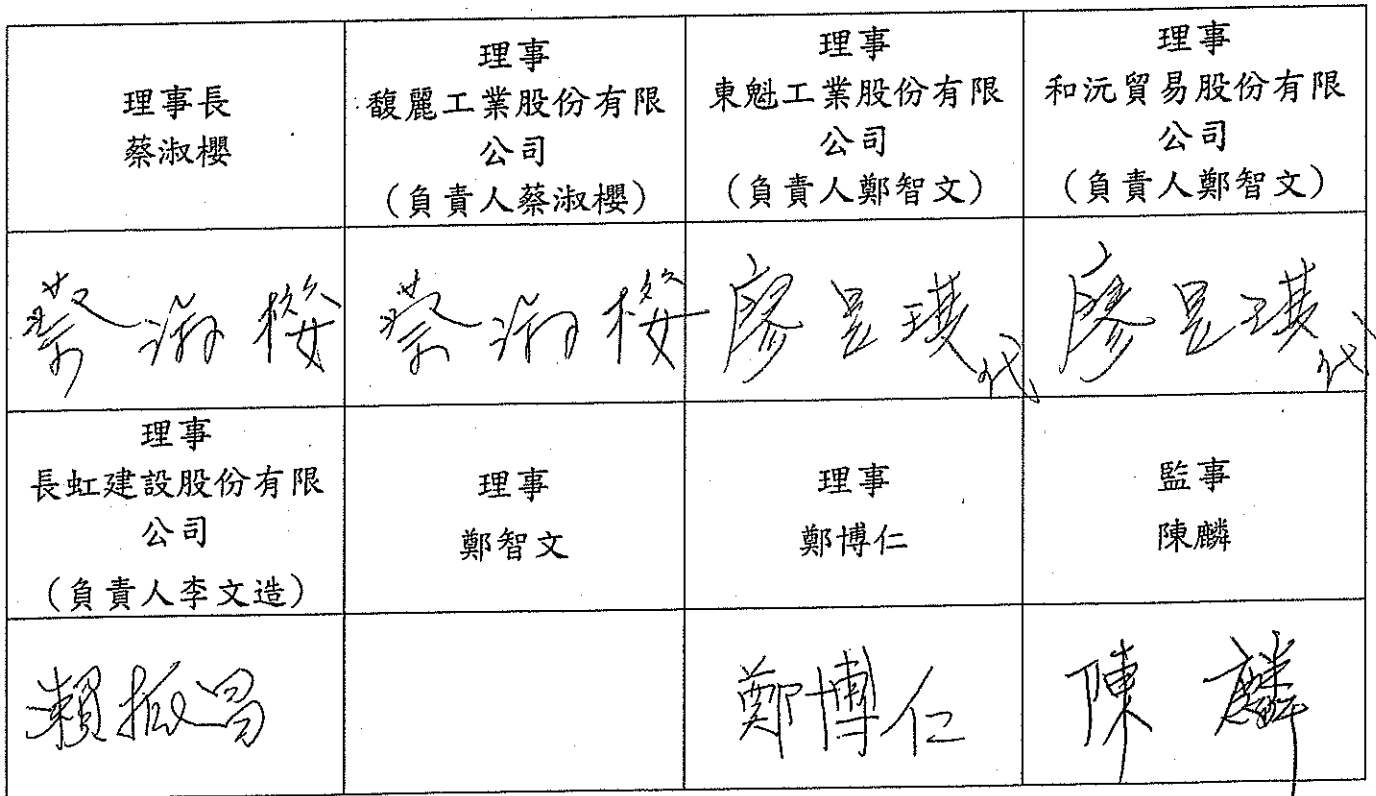 理事長
蔡淑櫻
理事
馥麗工業股份有限
公司
(負責人蔡淑櫻)
理事
東魁工業股份有限
公司
(負責人鄭智文)
理事
和沅貿易股份有限
公司
(負責人鄭智文)
蔡淑櫻
蔡淑櫻
廖昱瑛代
廖昱瑛代
理事
長虹建設股份有限
公司
(負責人李文造)
理事
鄭智文
理事
鄭博仁
監事
陳麟
賴振昌
鄭博仁
陳麟